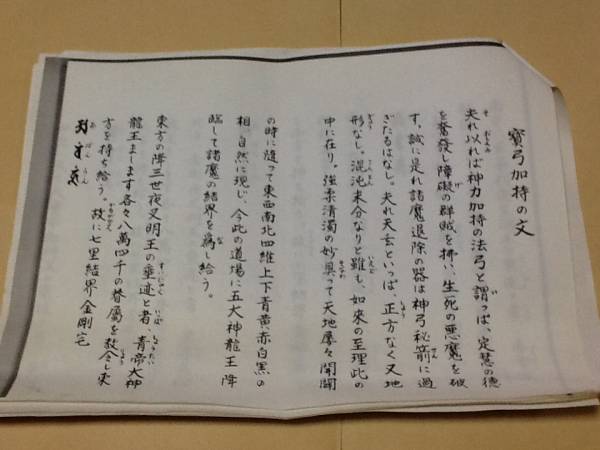 寳弓加持の文
夫れ以れば神力加持の法弓と謂っぱ、定慧の徳
を奮發し障礙の群賊を拂い、生死の悪魔を破
す、誠に是れ諸魔退除の器は神弓秘箭に過
ぎたるはなし。夫れ天玄といっぱ、正方なく又地
形なし。混沌未分なりと雖も、如來の至理此の
中に在り。強柔清濁の妙具って天地摩々開闢
の時に随って東西南北四維上下青黄赤白黒の
相、自然に現じ、今此の道場に五大神龍王降
臨して諸魔の結界を爲し給う。
東方の降三世夜叉明王の垂迹と者、青帝大神
龍王まします各々八萬四千の眷屬を教令し東
方を持ち給う。故に七里結界金剛宅